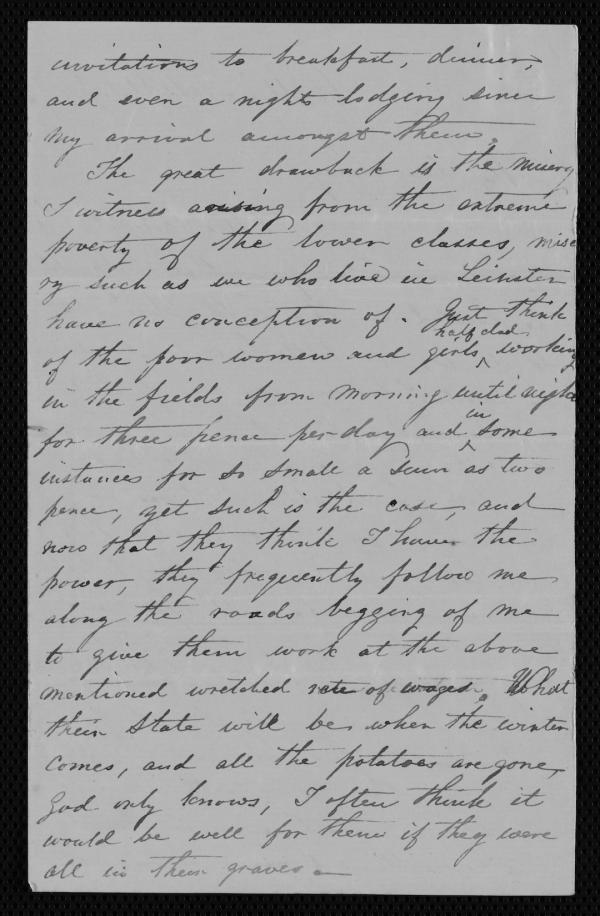 invitations to breakfast, dinner,
and even a nights lodging since
my arrival amongst them.
The great drawback is the misery
I witness arising from the extreme
poverty of the lower classes, mise
ry such as we who live in Leinster
have no conception of. Just think
half clad
of the poor women and girls ^ working
in the fields from morning until night
in
for three pence per day and ^ some
instances for so small a sum as two
pence, yet such is the case, and
now that they think I have the
power, they frequently follow me
along the roads begging of me
to give them work at the above
mentioned wretched rate of wages. What
their State will be when the winter
comes, and all the potatoes are gone,
God only knows, I often think it
would be well for them if they were
all in their graves –